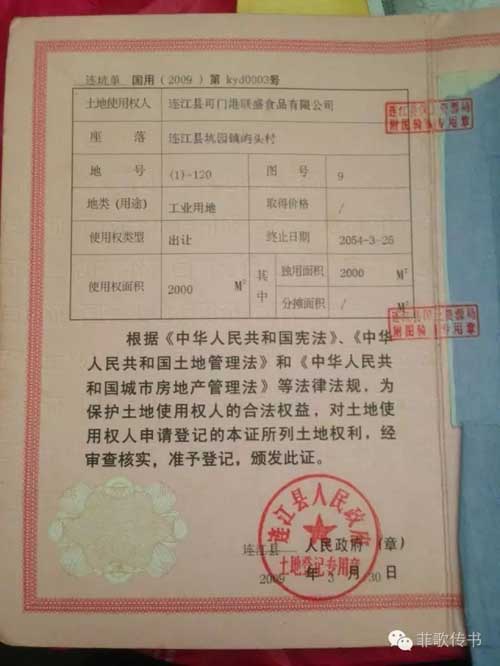 连坑单 国用（2009）第 kyd0003号
土地使用权人 连江县可门港联盛食品有限公司
座 落 连江县坑园镇屿头村
地 号 (1)-120 图 号 9
地类（用途） 工业用地 取得价格 /
使用权类型 出让 终止日期 2054-3-25
使用权面积 2000 M² 其中 独用面积 2000 M²
分摊面积 / M²
根据《中华人民共和国宪法》、《中
华人民共和国土地管理法》和《中华人民共
和国城市房地产管理法》等法律法规，为
保护土地使用权人的合法权益，对土地使
用权人申请登记的本证所列土地权利，经
审查核实，准予登记，颁发此证。
连江县 人民政府（章）
2009 年 3 月 30 日
连江县人民政府
土地登记专用章
连江县国土资源局
附图骑缝专用章
连江县国土资源局
附图骑缝专用章
菲歌传书